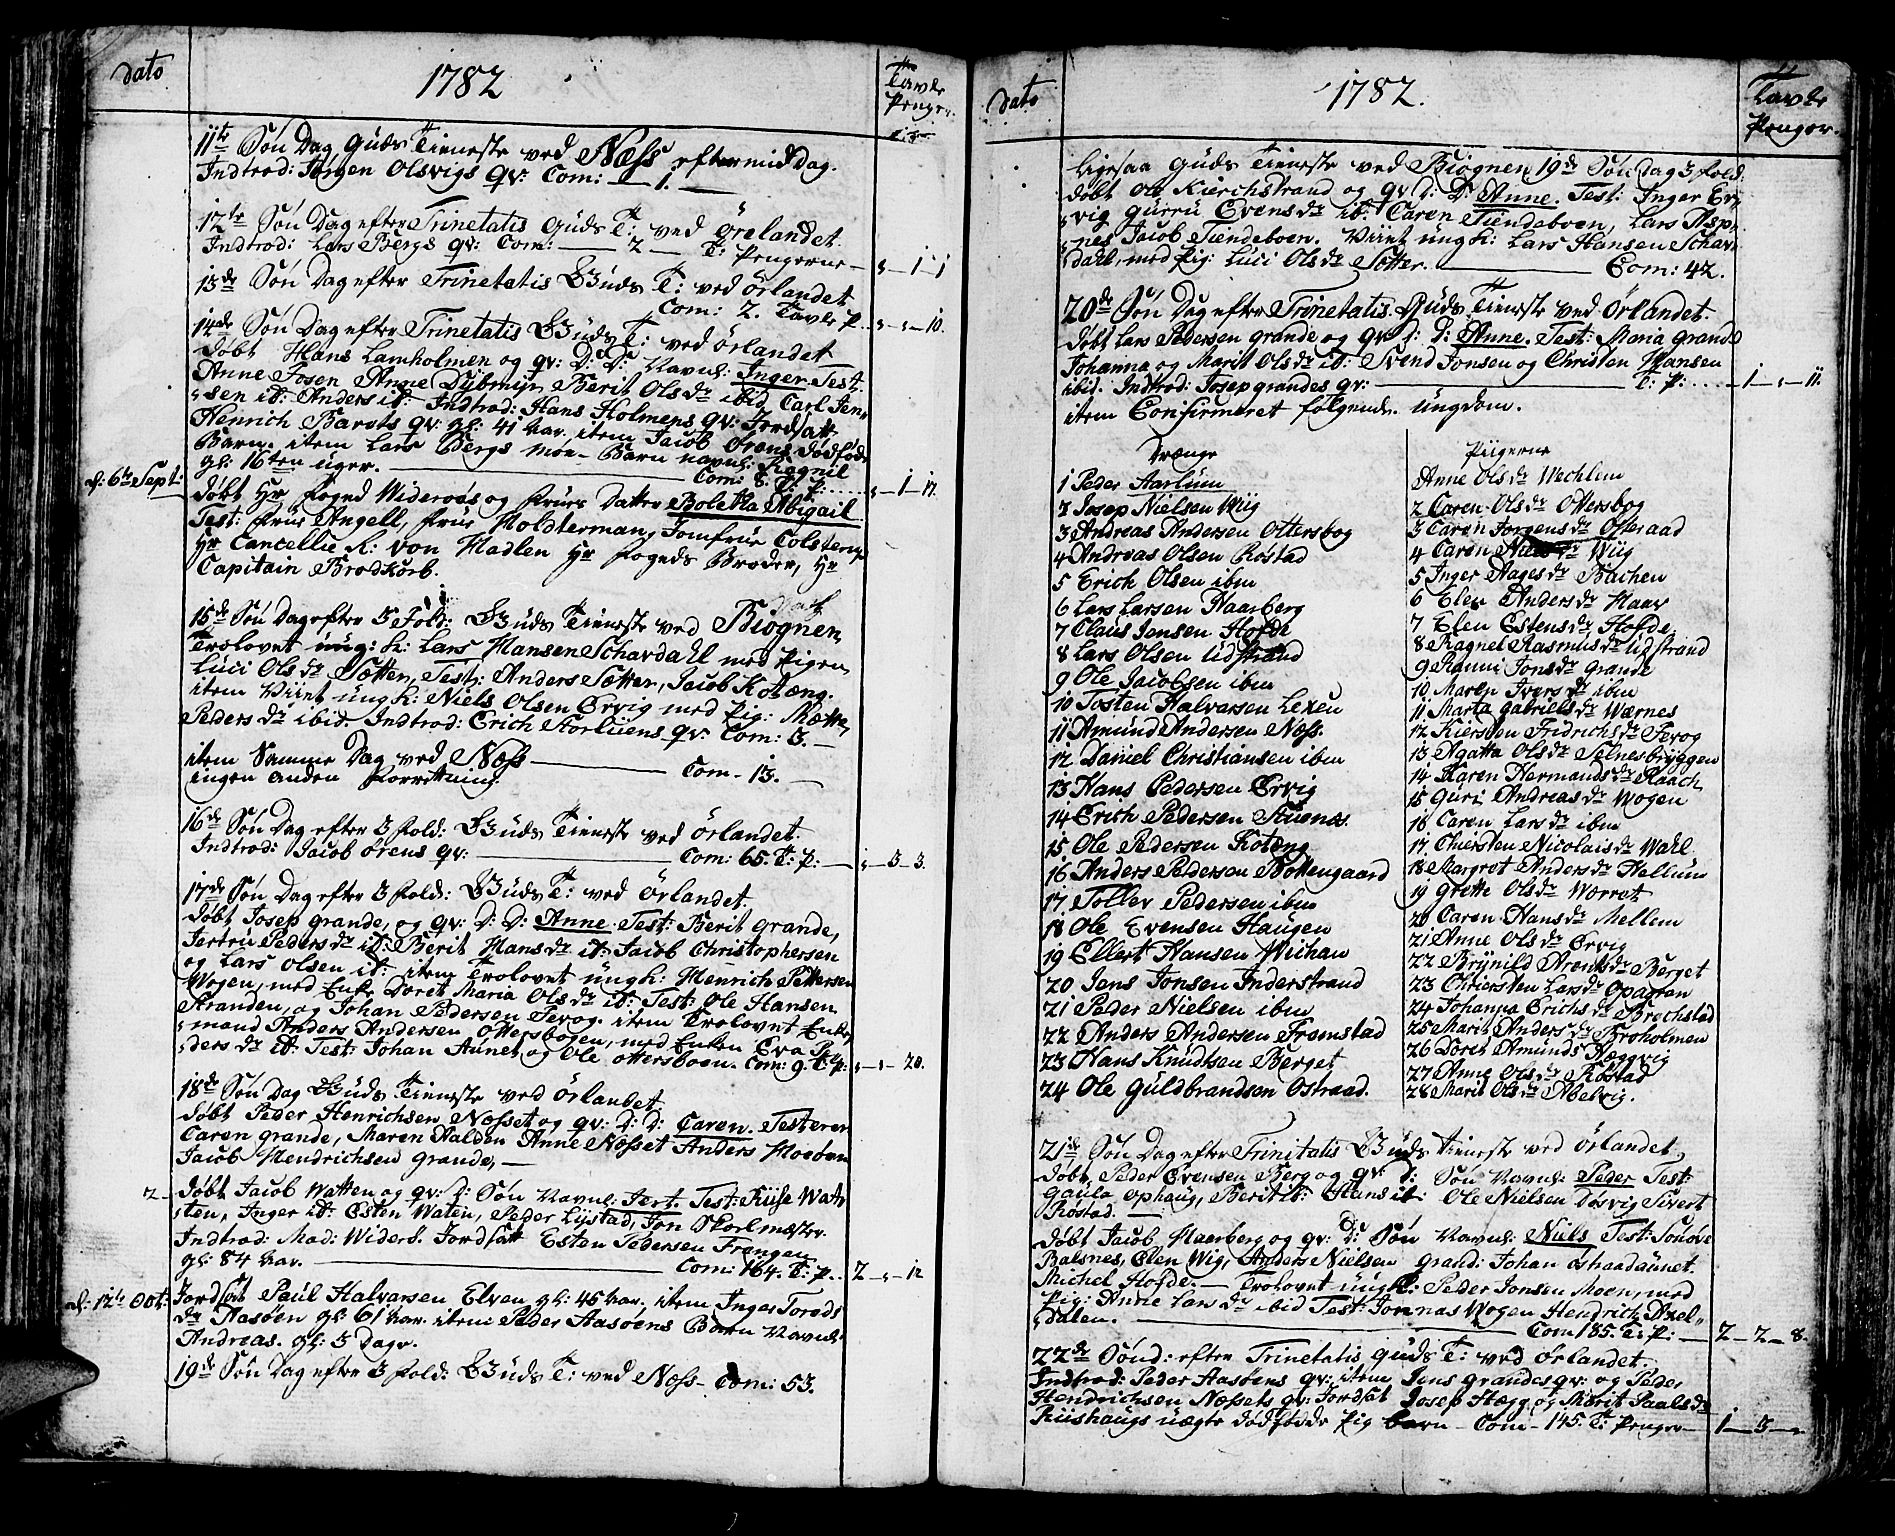 dato
1782
Tavle
Penger
11te Søn Dag Guds Tieneste ved Næss eftermiddag.
Indtrod: Jørgen Olsvigs qv: Com: — 1. —
12te Søn Dag efter Trinetatis Guds T: ved Ørelandet
Indtrod: Lars Bergs qv: Com: — 2 — T: Pengerne — 1 - 1
13de Søn Dag efter Trinetatis Guds T: ved Ørlandet
Com: 2. Tavle P. — 10.
14de Søn Dag efter Trinetatis Guds T: ved Ørlandet
Døbt Hans Lamholmen og qv: D: D: Navnl: Inger Test:
Anne Josen Anne Dybmyr Berit Ols dr ibid Carl Jen¬
sen it: Anders it: Indtrod: Hans Holmens qv: Jordsatt
Henrich Barots qv gl: 41 Aar. item Jacob Ørens dødføde
Barn. item Lars Bergs Barn navnl: Ragnil
gl: 16ten uger. — Com: 8. T: P: — 1 - 17.
d: 6te Sept:
Døbt Hr foged Widerøes og frues Datter Boletha Abigail
Test: frue Angell, frue Holdterman, Jomfrue Colsteru
Hr Cancellie R: von Hadlen Hr fogeds Broder, Hr
Capitain Brodkorb.
15de Søn Dag efter 3 Fold: Guds Tieneste ved Biognen
Trolovet ung: K: Lars Hansen Schardahl med Pigen
Luci Ols dr Sætter, Test: Anders Sætter, Jacob Kotæng.
item Viiet ung K: Niels Olsen Ervig med Pig: Mætte
Peders dr ibid. Indtrod: Erich Storliiens qv: Com: 3. —
item Samme Dag ved Næss — Com - 13. —
ingen anden forretning
16de Søn Dag efter 3 fold: Guds Tieneste ved Ørlandet
Indtrod: Jacob Ørens qv: — Com: 65. T: P: — 3 - 3.
17de Søn Dag efter 3 fold: Guds T: ved Ørlandet
Døbt Josep Grande, og qv: D: D: Anne. Test: Berit Grande,
Jertru Peders dr it: Berit Hans dr it: Jacob Christophersen
og Lars Olsen it: item Trolovet ung K: Henrich Pettersen
Wogen, med Enke Doret Maria Ols dr it: Test: Ole Hansen
Stranden, og Johan Pedersen Ferog. item Trolovet Enke¬
mand Anders Andersen Ottersbogen, med Enken Eva Pe¬
ders dr it: Test: Johan Aunet og Ole Ottersboen. Com: 9. T: P: — 20.
18de Søn Dag Guds Tieneste ved Ørlandet
Døbt Peder Henrichsen Næsset og qv: D: D: Caren. Testerer
Caren Grande, Maren Aalden Anne Næsset Anders Moeboen
Jacob Hendrichsen Grande, —
2 - Døbt Jacob Watten og qv: D: Søn Navnl: Jert. Test: Kiise Wat¬
ten, Inger it: Esten Waten, Peder Lÿstad, Jon Skolmæster.
Indtrod: Mad: Widerø. Jordsatt Esten Pedersen Frengen
gl: 84 Aar. — Com: 164. T: P.. 2 — 12
d: 12te Oct: Jordsat Paul Halvorsen Elven gl: 45 Aar. item Inger Torods
dr Aasøen gl: 61 Aar. item Peder Aasøens Barn Navnl:
Andreas. gl: 3 Dage.
19de Søn Dag efter 3 fold: Guds T: ved Næss — Com: 53.
dato
1782.
Tavle
Penger.
Ligesaa Guds Tieneste ved Biognen 19de Søn Dag 3 fold:
Døbt Ole Kierchstrand og qv: D: D: Anne. Test: Inger Er¬
vig Gurru Evens dr it: Caren Tiendeboen, Lars Asp¬
nes Jacob Tiendeboen. Viiet ung K: Lars Hansen Schar¬
dahl, med Pig: Luci Ols dr Sætter. — Com: 42.
20de Søn Dag efter Trinetatis Guds Tieneste ved Ørlandet
Døbt Lars Pedersen Grande og qv D: D: Anne. Test: Maria Grande
Johanna og Marit Ols dr it: Svend Jonsen og Christen Hansen
ibid: Indtrod: Josep Grandes qv: — T: P: — 1 — 11.
item Confirmeret følgende ungdom.
Drænge
1 Peder Aarlum
2 Josep Nielsen Wiig
3 Andreas Andersen Ottersbog
4 Andreas Olsen Røstad
5 Erich Olsen ibm
6 Lars Larsen Haarberg
7 Claus Jonsen Hofde
8 Lars Olsen Udstrand
9 Ole Jacobsen ibm
10 Tosten Halvarsen Lexen
11 Amund Andersen Næss.
12 Daniel Christiansen ibm
13 Hans Pedersen Ervig
14 Erich Pedersen Stuenæs
15 Ole Pedersen Kotæng
16 Anders Pedersen Bottengaard
17 Tollev Pedersen ibm
18 Ole Evensen Haugen
19 Ellert Hansen Wichan
20 Jens Jonsen Inderstrand
21 Peder Nielsen ibm
22 Anders Andersen Fremstad
23 Hans Knudtsen Berget
24 Ole Guldbrandsen Ostraad.
Piigerne
Anne Ols dr Wechlem
2 Caren Ols dr Ottersbog
3 Caren Jørgens dr Osteraad
4 Caren Niels dr Wiig
5 Inger Aages dr Bachen
6 Elen Anders dr Haar
7 Elen Estens dr Hofde
8 Ragnel Rasmus dr Udstrand
9 Ranni Jons dr Grande
10 Maren Ivers dr ibm
11 Marta Gabriels dr Wærnes
12 Kiersten Fridrichs dr Ferog
13 Agatta Ols dr Selnesbryggen
14 Karen Hermands dr Raach
15 Guri Andreas dr Wogen
16 Caren Lars dr ibm
17 Chiersten Nicolais dr Wahl
18 Margret Anders dr Hellum
19 Grette Ols dr Worret
20 Caren Hans dr Mellem
21 Anne Ols dr Ervig
22 Brynild Arents dr Berget
23 Chiersten Lars dr Opagran
24 Johanna Erichs dr Brechstad
25 Marit Anders dr Broholmen
26 Doret Amunds Hæggvig
27 Anne Ols dr Røstad
28 Marit Ols dr Abelvig.
21de Søn Dag efter Trinitatis Guds Tieneste ved Ørlandet
Døbt Peder Evensen Berg og qv: D: Søn Navnl: Peder Test:
Gaula Ophaug, Berit it: Hans it: Ole Nielsen Døsvig Sivert
Røstad. —
Døbt Jacob Haarberg og qv: D: Søn Navnl: Niels Test: Sønøve
Balsnes, Elen Wig, Anders Nielsen Grand: Johan Østraadaunet
Michel Hofde. — Trolovet ung K: Peder Jonsen Moen, med
Pig: Anne Lars dr ibid Test: Jonnas Wogen Hendrich Axel¬
dalen. — Com 185. T: P: — 2 — 2 — 8.
22de Sønd: efter Trinetatis Guds T: ved Ørlandet.
Indtrod: Peder Aasøens qv: item Jens Grandes qv: og Peder
Hendrichsen Næssets qv: Jordsat Josep Hægg og Marit Paals dr
Ruishaugs uægte dødføde Pig barn — Com — 145. T: Penger — 1 — 3 —